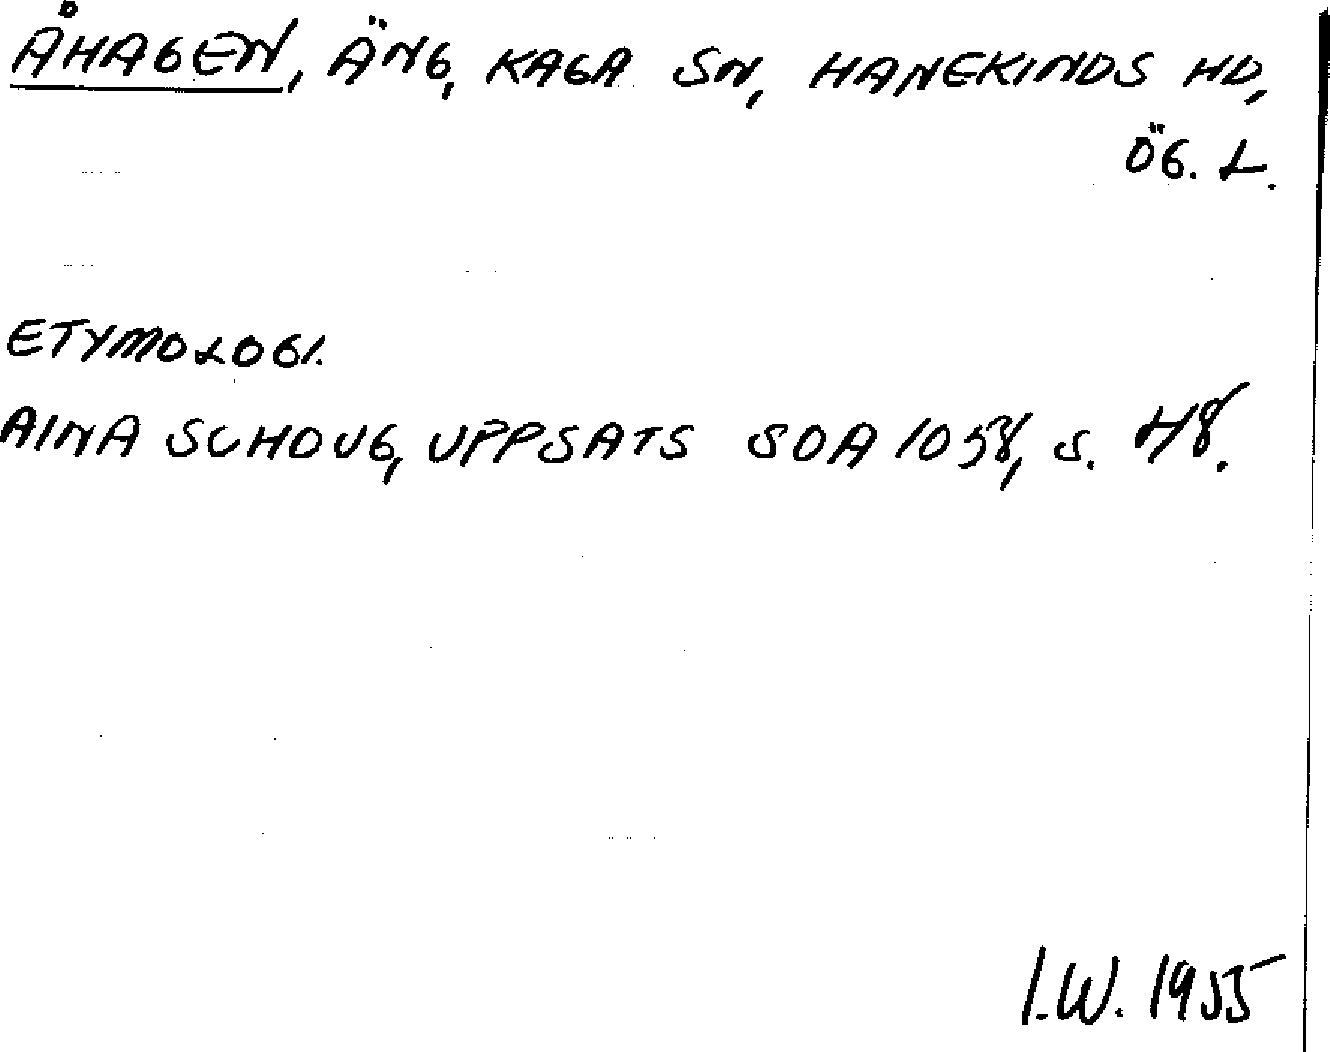 ÅHAGEN, ÄNG, KAGA SN, HANEKINDS HD,
ÖG. L.
ETYMOLOGI.
AINA SCHOUG, UPPSATS SOA 1058, S. 48.
I.W. 1955